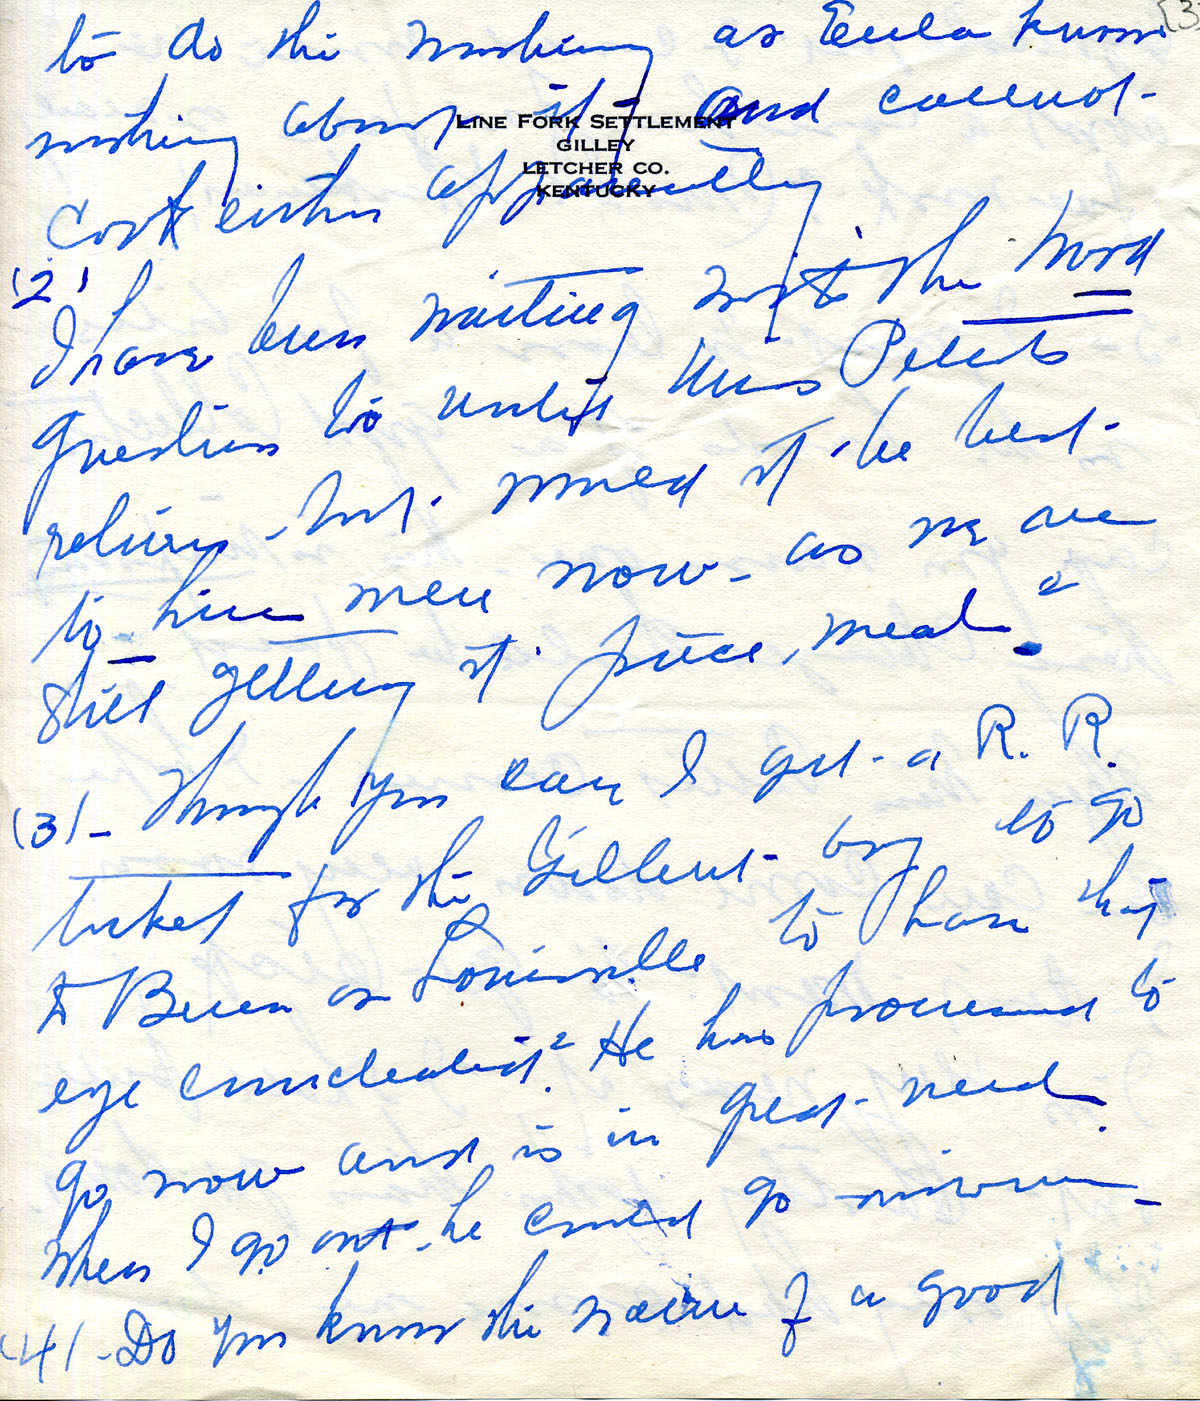 [3]
to do the washing as Eula knows
nothing about it and cannot
LINE FORK SETTLEMENT
GILLEY
LETCHER CO.
KENTUCKY
cook either apparently
(2) I have been waiting with the Wood
question to until Miss Petit's
return - but. would it be best
to hire men now - as we are
still getting it piece, meal?
(3) - Through you can I get a R. R.
ticket for the Gilbert boy to go
to Berea or Louisville to have that
eye enucleated? He has promised to
go now and is in great need.
When I go out he could go -
(4) - Do you know the name of a good